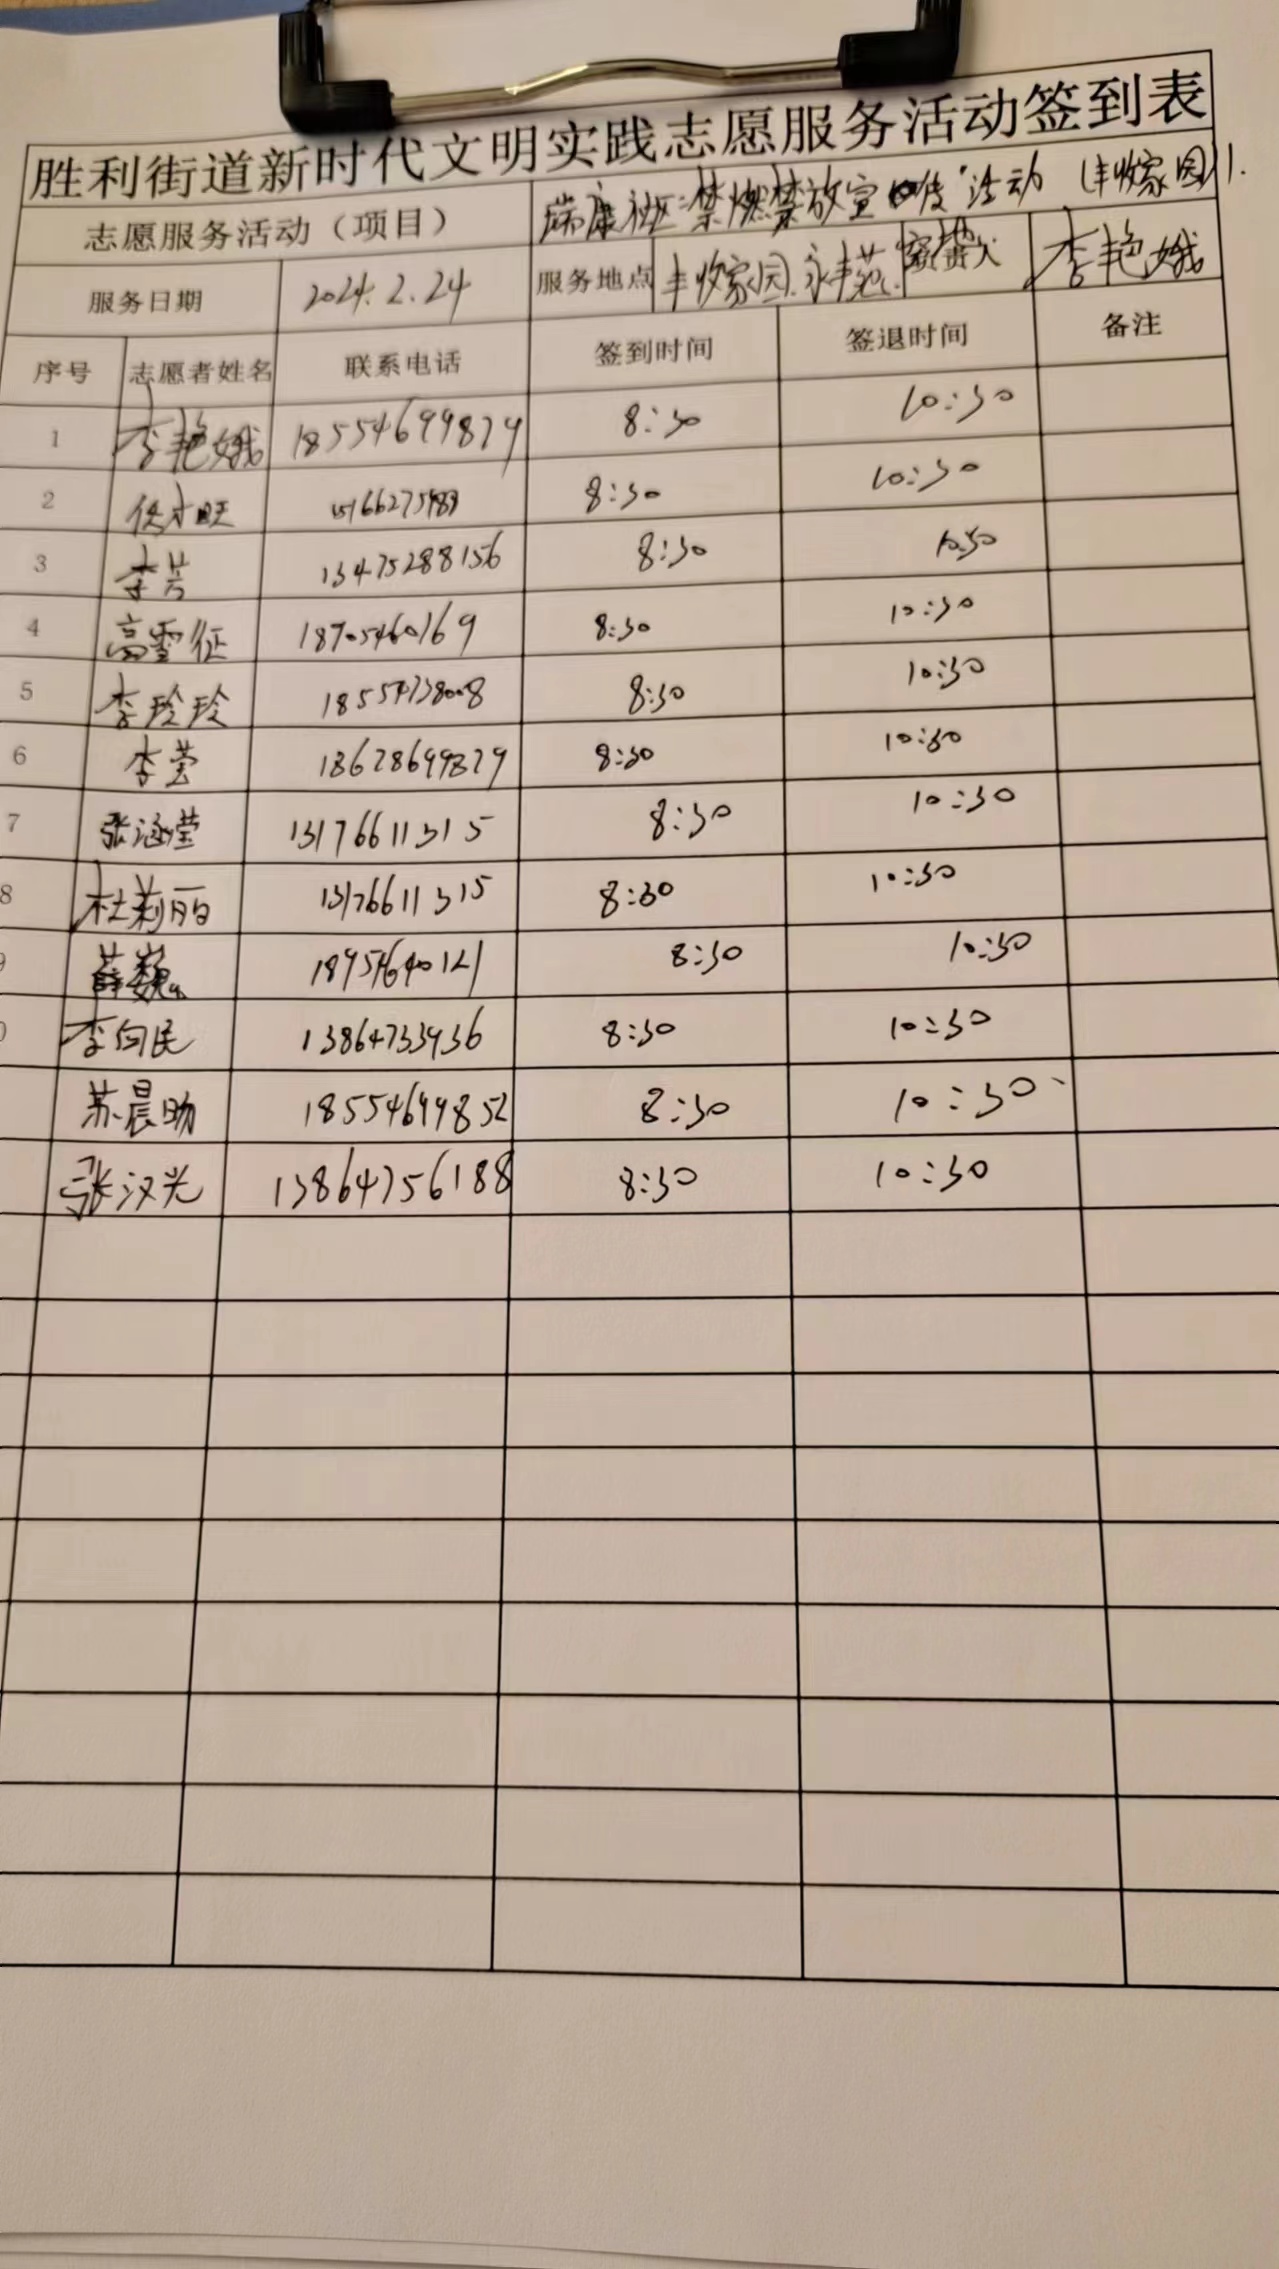 胜利街道新时代文明实践志愿服务活动签到表
志愿服务活动（项目） 瑞康社区"禁燃禁放宣传"活动（丰收家园）.
服务日期 2024.2.24 服务地点 丰收家园.永丰苑. 负责人 李艳娥
序号 志愿者姓名 联系电话 签到时间 签退时间 备注
1 李艳娥 18554699879 8:30 10:30
2 8:30 10:30
3 李芳 13475288156 8:30 10:30
4 高雪征 18705460769 8:30 10:30
5 李玲玲 18554738008 8:30 10:30
6 李芸 18678699879 8:30 10:30
7 张涵莹 13176611315 8:30 10:30
8 杜莉丽 13176611315 8:30 10:30
薛巍 18954640121 8:30 10:30
李向民 13864733936 8:30 10:30
苏晨 18554699852 8:30 10:30
张汉光 13864756188 8:30 10:30